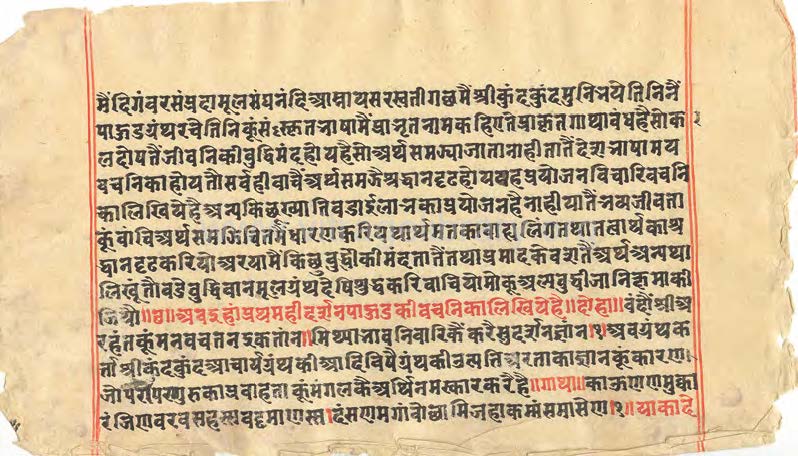 मैं दिगंबरसंप्रदामूलसंघनंदिआम्नायसरस्वतीगच्छमैं श्रीकुंदकुंदमुनि भये तिनिनैं
पाऊडग्रंथ रचे तिनिकूं संस्कृतभाषामैं प्राभृतनाम कहिए ते प्राकृतगाथाबंध है सो क
लदोषतैं जीवनिकी बुद्धि मंद होय है सो अर्थ समज्या जाता नाही तातैं देशभाषामय
वचनिका होय तौ सर्व ही वाचैं अर्थ समझै श्रद्धान दृढ होय यह प्रयोजन विचारि वचनि
का लिखिये है अन्य किछु ख्याति वडाई लाभका प्रयोजन है नाही यातैं भव्यजीव ता
कूं वांचि अर्थ समजि चितमैं धारण करि यथार्थ मतका वाह्यलिंग तथा तत्वार्थका श्र
द्धान दृढ करियो अर यामैं किछु बुद्धीकी मंदतातैं तथा प्रमादके वशतैं अर्थ अन्यथा
लिखूं तौ वडे बुद्धिवान मूलग्रंथ देषि शुद्ध करि वाचियो मोकू अल्पबुद्धी जानि क्षमा की
जियो॥छ॥अब इहां प्रथम ही दर्शनपाऊडकी वचनिका लिखिये है॥दोहा॥वंदौं श्रीअ
रहंतकूं मन वच तन इकतान॥मिथ्याभाव निवारिकैं करै सुदर्शन ज्ञान॥१॥अब ग्रंथक
र्त्ता श्रीकुंदकुंद आचार्य ग्रंथकी आदिविषै ग्रंथकी उत्पत्ति अर ताका ज्ञानकूं कारण
जो परापरगुरुका प्रवाह ताकूं मंगलकै अर्थि नमस्कार करै है॥गाथा॥काऊण णमुक्का
रं जिणवरवसहस्स वद्दमाणस्स।दंसणमग्गं वोछामि जहाकमं समासेण॥१॥याका दे